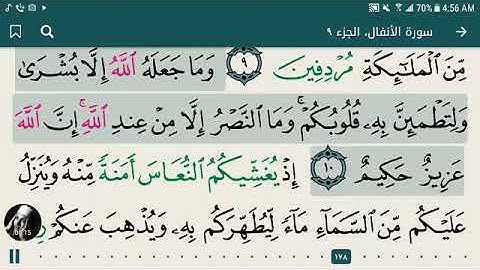 70% 4:56 AM
سورة الأنفال، الجزء ٩
مِّنَ ٱلْمَلَٰٓئِكَةِ مُرْدِفِينَ ٩ وَمَا جَعَلَهُ ٱللَّهُ إِلَّا بُشْرَىٰ
وَلِتَطْمَئِنَّ بِهِۦ قُلُوبُكُمْ ۚ وَمَا ٱلنَّصْرُ إِلَّا مِنْ عِندِ ٱللَّهِ ۚ إِنَّ ٱللَّهَ
عَزِيزٌ حَكِيمٌ ١٠ إِذْ يُغَشِّيكُمُ ٱلنُّعَاسَ أَمَنَةً مِّنْهُ وَيُنَزِّلُ
عَلَيْكُم مِّنَ ٱلسَّمَآءِ مَآءً لِّيُطَهِّرَكُم بِهِۦ وَيُذْهِبَ عَنكُمْ
١٧٨